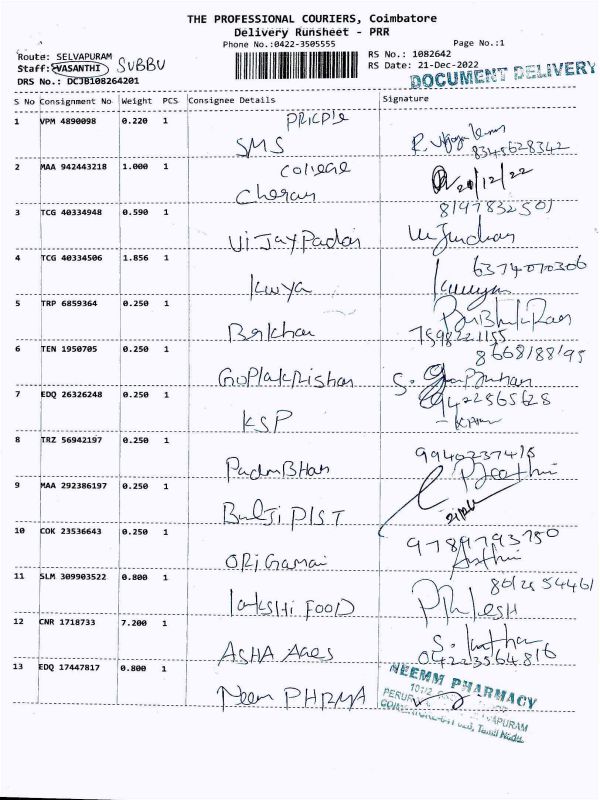 THE PROFESSIONAL COURIERS, Coimbatore
Delivery Runsheet - PRR
Phone No.:0422-3505555 Page No.:1
Route: SELVAPURAM RS No.: 1082642
Staff: VASANTHI SUBBU RS Date: 21-Dec-2022
DRS No.: DCJB108264201 DOCUMENT DELIVERY
S No Consignment No Weight PCS Consignee Details Signature
1 VPM 4890098 0.220 1
SMS 8345628342
2 MAA 942443218 1.000 1 College
Cheran 20/12/22
3 TCG 40334948 0.590 1 8197832501
Vijay Padai
4 TCG 40334506 1.856 1 6374070306
Kavya
5 TRP 6859364 0.250 1
7598221155
6 TEN 1950705 0.250 1 8668188195
GoPlakRishan
7 EDQ 26326248 0.250 1 9422565628
KSP
8 TRZ 56942197 0.250 1 9940237415
PadmBHan
9 MAA 292386197 0.250 1
DIST
10 COK 23536643 0.250 1 9789793750
ORiGamai
11 SLM 309903522 0.800 1
lakSHi FOOD
12 CNR 1718733 7.200 1
ASHA 04223564816
13 EDQ 17447817 0.800 1 NEEMM PHARMACY
Neem PHRMA